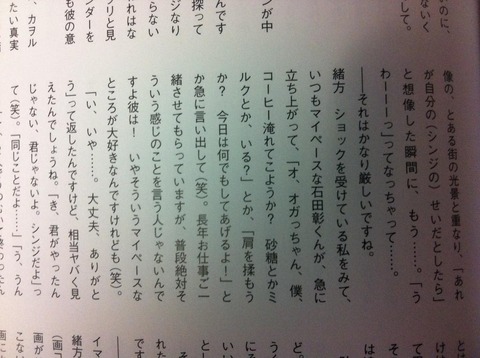 いのに、
ないく
して。
ンが中
んです
探って
ジなり
らない
ンダーを
リと見
れはな
も彼の意
、カヲル
たい真実
像の、とある街の光景と重なり、「あれ
が自分の（シンジの）せいだとしたら」
と想像した瞬間に、もう……。「う
わーーーっ」ってなっちゃって……。
――それはかなり厳しいですね。
緒方　ショックを受けている私をみて、
いつもマイペースな石田彰くんが、急に
立ち上がって、「オ、オガっちゃん、僕、
コーヒー淹れてこようか？　砂糖とかミ
ルクとか、いる？」とか、「肩を揉もう
か？　今日は何でもしてあげるよ！」と
か急に言い出して（笑）。長年お仕事ご一
緒させてもらっていますが、普段絶対そ
ういう感じのことを言う人じゃないんで
すよ彼は！　いやそういうマイペースな
ところが大好きなんですけれども（笑）。
「い、いや……。大丈夫、ありがと
う」って返したんですけど、相当ヤバく見
えたんでしょうね。「き、君がやったん
じゃない、君じゃないよ。シンジだよ」っ
て（笑）。「同じことだよ……」「う、うん
ど。
れた
です
イマ
緒方
（画
画が